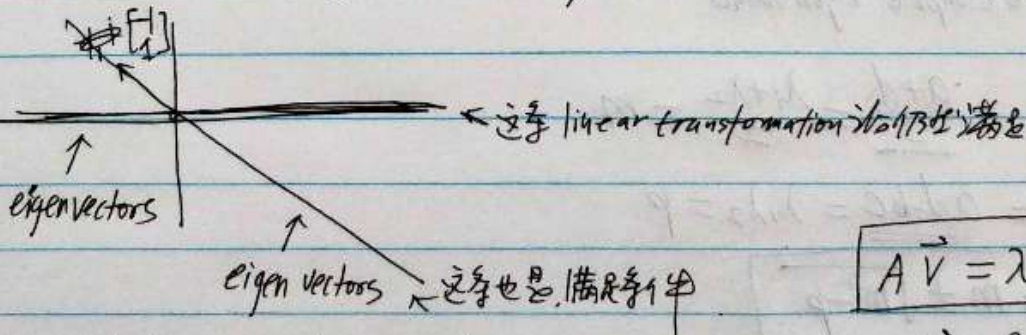 [-1
1]
←这条 linear transformation 后仍满足
eigenvectors
eigen vectors ←这条也是,满足条件
A V⃗ = λ